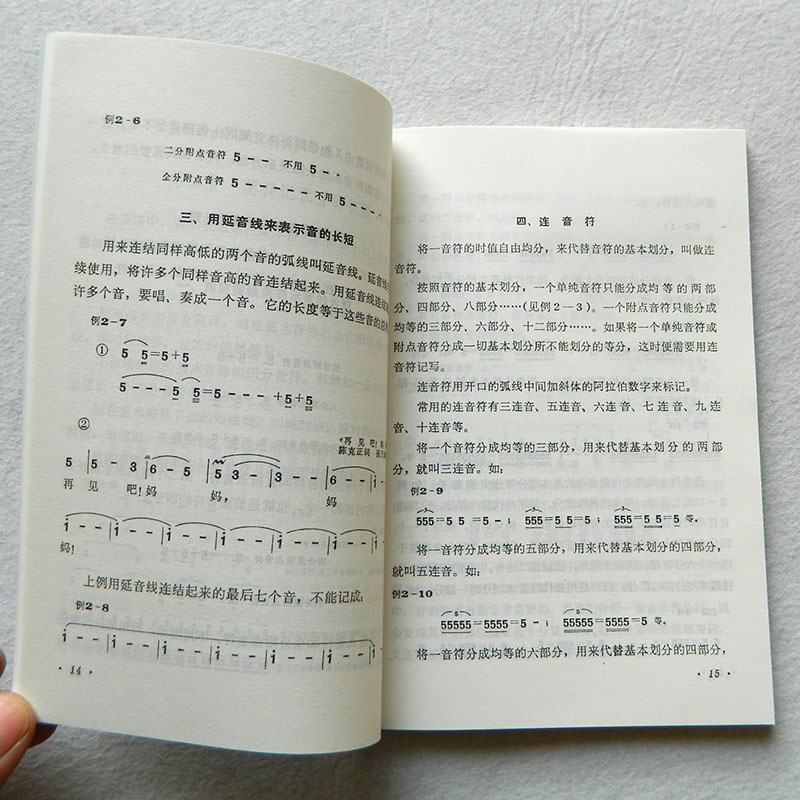 例2-6
二分附点音符 5 - - 不用 5 - ·
全分附点音符 5 - - - - - 不用 5 - - - ·
三、用延音线来表示音的长短
用来连结同样高低的两个音的弧线叫延音线。延音线
续使用，将许多个同样音高的音连结起来。用延音线连结
许多个音，要唱、奏成一个音。它的长度等于这些音的总和
例2-7
① 5 5=5+5
5 - - - 5 5= 5 - - - +5+5
②
《再见吧！
陈克正词
5 5 - 3 6 - 5 5 3 - 3 - - 6 - -
再 见 吧！妈 妈， 妈
i - - i - - i - - i - - i - - i - - i - -
妈！
上例用延音线连结起来的最后七个音，不能记成：
例2-8
i - - i - - i - - i - - i - - i - - i - -
· 14 ·
四、连 音 符
将一音符的时值自由均分，来代替音符的基本划分，叫做连
音符。
按照音符的基本划分，一个单纯音符只能分成均等的两部
分、四部分、八部分……(见例2—3)。一个附点音符只能分成
均等的三部分、六部分、十二部分……。如果将一个单纯音符或
附点音符分成一切基本划分所不能划分的等分，这时便需要用连
音符记写。
连音符用开口的弧线中间加斜体的阿拉伯数字来标记。
常用的连音符有三连音、五连音、六连音、七连音、九连
音、十连音等。
将一个音符分成均等的三部分，用来代替基本划分的两部
分，就叫三连音。如：
例2-9
3 3 3
555=5 5 = 5 - ； 555 = 5 5=5； 555= 5 5=5 等。
将一音符分成均等的五部分，用来代替基本划分的四部分，
就叫五连音。如：
例2-10
5 5
55555 =5555= 5 - ； 55555 =5555=5 等。
将一音符分成均等的六部分，用来代替基本划分的四部分，
· 15 ·